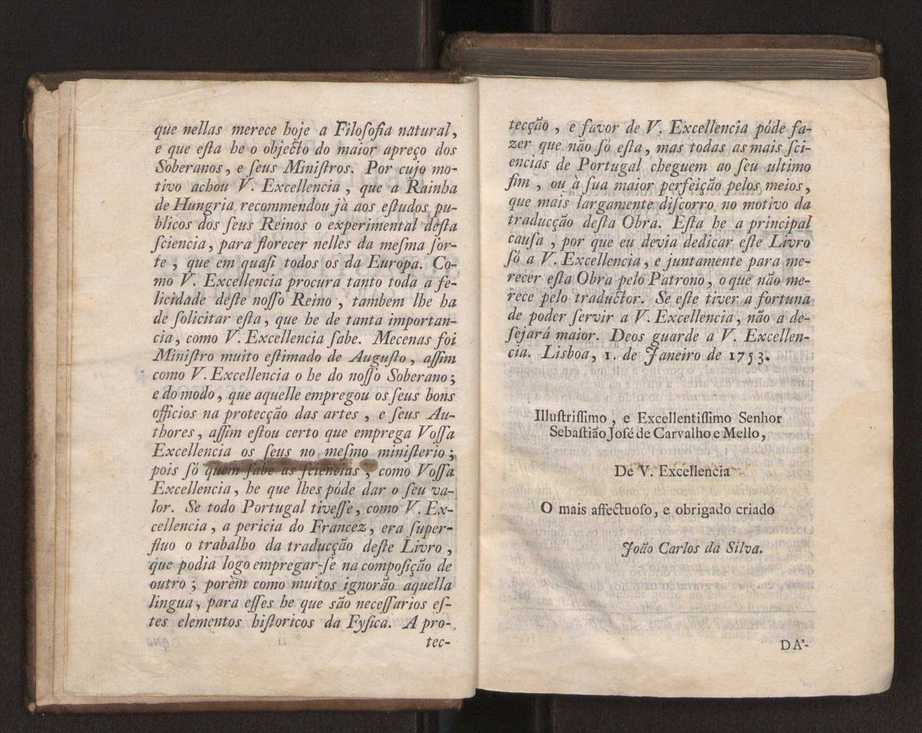 que nellas merece hoje a Filosofia natural,
e que esta he o objecto do maior apreço dos
Soberanos, e seus Ministros. Por cujo mo-
tivo achou V. Excellencia, que a Rainha
de Hungria recommendou já aos estudos pu-
blicos dos seus Reinos o experimental desta
sciencia, para florecer nelles da mesma sor-
te, que em quasi todos os da Europa. Co-
mo V. Excellencia procura tanto toda a fe-
licidade deste nosso Reino, tambem lhe ha
de solicitar esta, que he de tanta importan-
cia, como V. Excellencia sabe. Mecenas foi
Ministro muito estimado de Augusto, assim
como V. Excellencia o he do nosso Soberano;
e do modo, que aquelle empregou os seus bons
officios na protecção das artes, e seus Au-
thores, assim estou certo que emprega Vossa
Excellencia os seus no mesmo ministerio;
pois só quem sabe as sciencias, como Vossa
Excellencia, he que lhes póde dar o seu va-
lor. Se todo Portugal tivesse, como V. Ex-
cellencia, a pericia do Francez, era super-
fluo o trabalho da traducção deste Livro,
que podia logo empregar-se na composição de
outro; porém como muitos ignorão aquella
lingua, para esses he que são necessarios es-
tes elementos historicos da Fysica. A pro-
tec-
tecção, e favor de V. Excellencia póde fa-
zer que não só esta, mas todas as mais sci-
encias de Portugal cheguem ao seu ultimo
fim, ou á sua maior perfeição pelos meios,
que mais largamente discorro no motivo da
traducção desta Obra. Esta he a principal
causa, por que eu devia dedicar este Livro
só a V. Excellencia, e juntamente para me-
recer esta Obra pelo Patrono, o que não me-
rece pelo traductor. Se este tiver a fortuna
de poder servir a V. Excellencia, não a de-
sejará maior. Deos guarde a V. Excellen-
cia. Lisboa, 1. de Janeiro de 1753.
Illustrissimo, e Excellentissimo Senhor
Sebastião José de Carvalho e Mello,
De V. Excellencia
O mais affectuoso, e obrigado criado
João Carlos da Silva.
DA'-